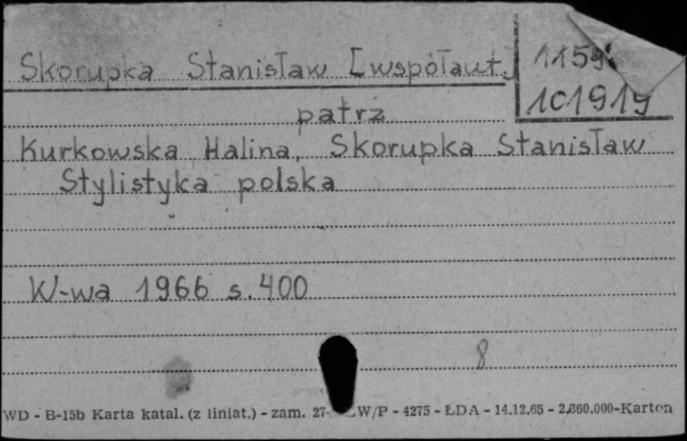 Skorupka Stanisław [współaut.
101919
patrz
Kurkowska Halina, Skorupka Stanisław
Stylistyka polska
W-wa 1966 s. 400
8
WD - B-15b Karta katal. (z liniat.) - zam. W/P - 4275 - ŁDA - 14.12.65 - 2.860.000-Karton